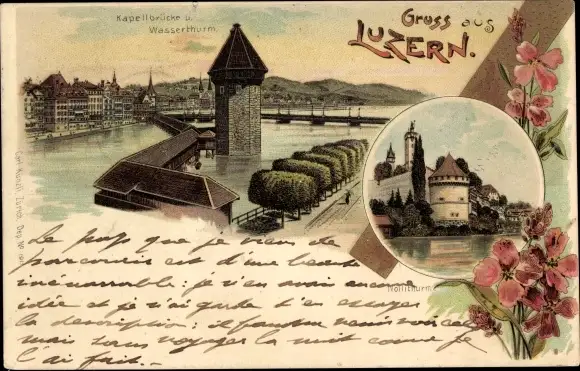 Kapellbrücke u.
Wasserthurm.
Gruss aus
LUZERN.
Nöllithurm
Carl Künzli, Zürich, Dep. No
Le pays que je viens de
parcourir est d'une beauté
inénarrable: je n'en avais aucune
idée et je n'ai garde d'en essayer
la description; il faudra venir voir cela
mais sans voyager la nuit comme je
l'ai fait.